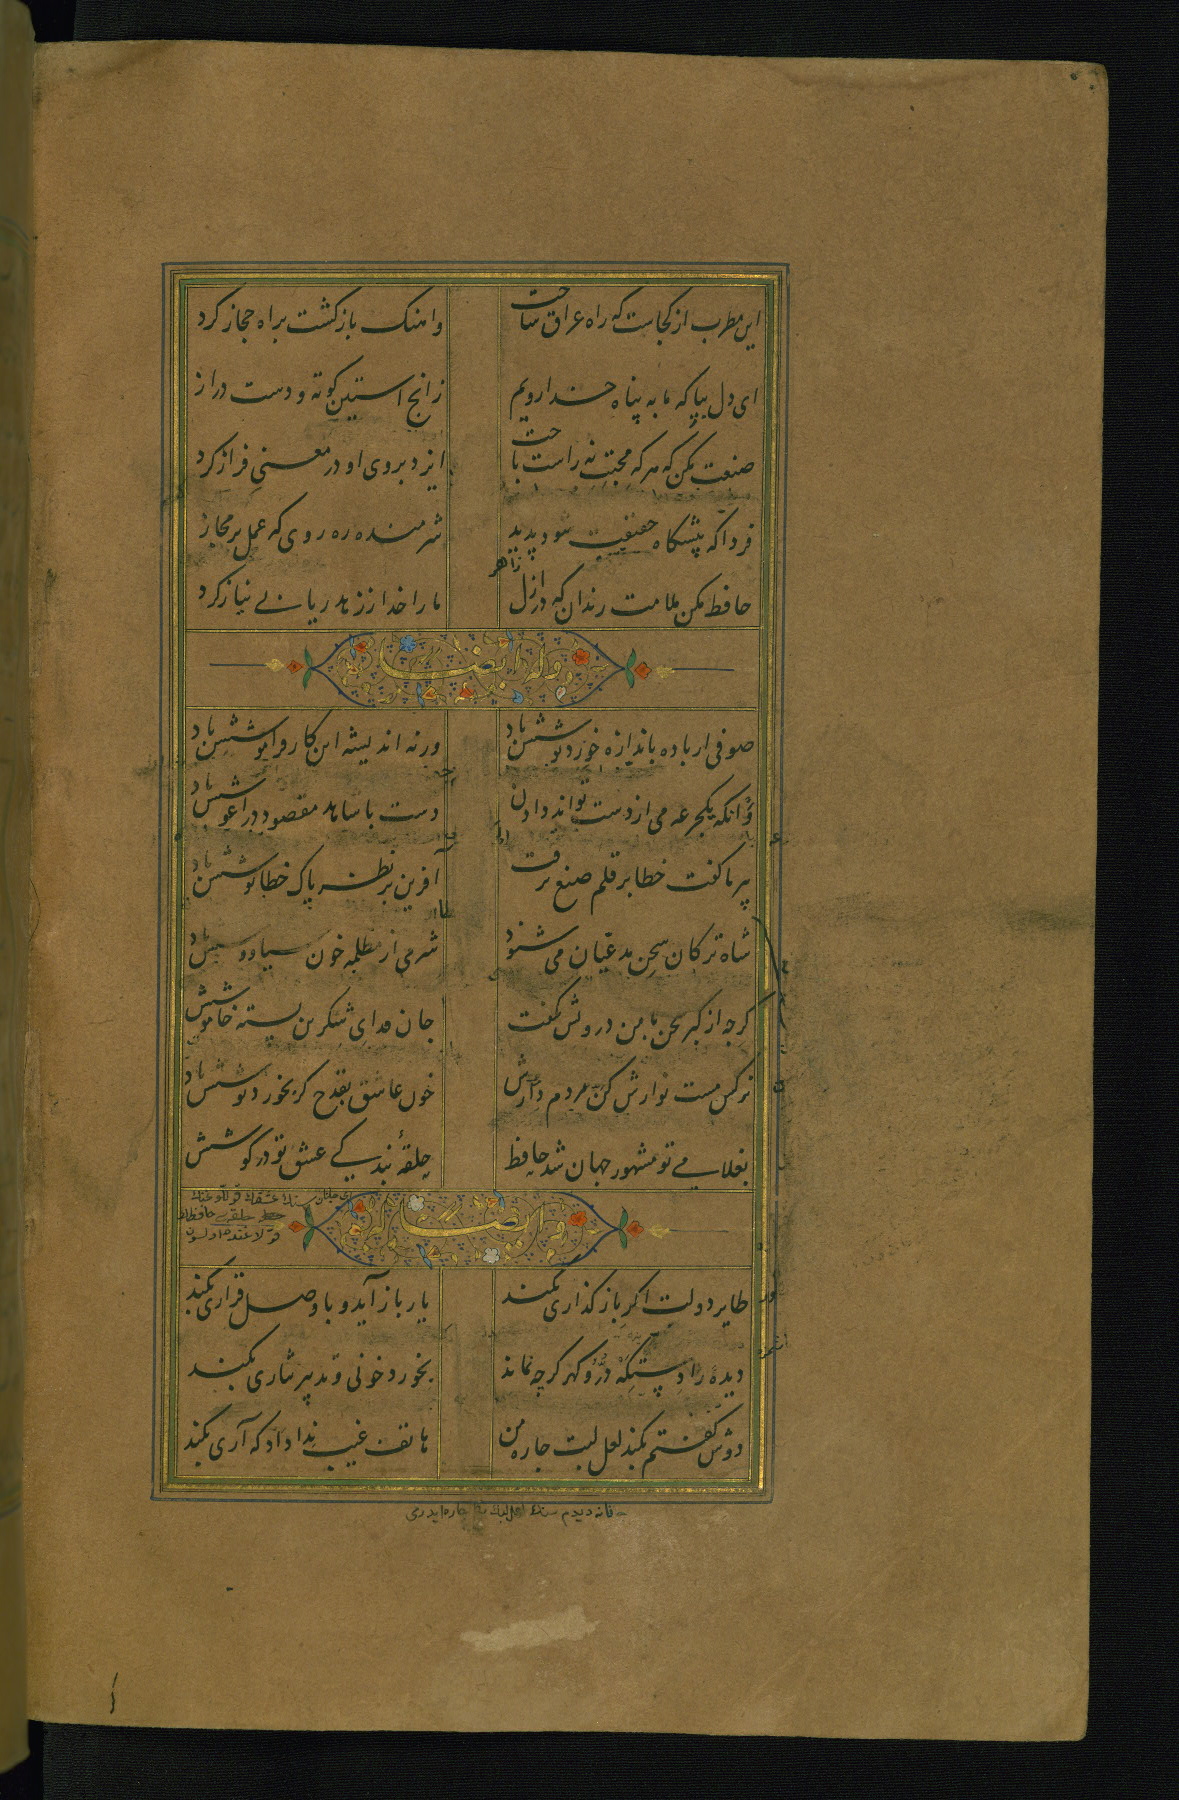 این مطرب از کجاست که راه عراق ساخت
واهنک بازکشت براه حجاز کرد
ای دل بیا که ما به پناه خدا رویم
زانچ استین کوته و دست دراز
صنعت مکن که هر که محبت نه راست باخت
ایزد بروی او در معنی فراز کرد
فردا که پیشکاه حقیقت شود پدید
شرمنده ره روی که عمل بر مجاز
حافظ مکن ملامت رندان که در ازل
ما را خدا ز زهد ریا بی نیاز کرد
وله ایضا
صوفی ار باده باندازه خورد نوشش باد
ورنه اندیشه این کار فراموشش باد
وانکه یکجرعه می از دست تواند دادن
دست با شاهد مقصود در اغوشش باد
پیر ما کفت خطا بر قلم صنع نرفت
آفرین بر نظر پاک خطا پوشش باد
شاه ترکان سخن مدعیان می شنود
شرمی از مظلمه خون سیاووشش باد
کرچه از کبر سخن با من درویش نکفت
جان فدای شکرین پسته خاموشش
نرکس مست نوازش کن مردم دارش
خون عاشق بقدح کر بخورد نوشش باد
بغلامی تو مشهور جهان شد حافظ
حلقهٔ بندکی عشق تو در کوشش
وله ایضا
طایر دولت اکر باز کذاری بکند
یار باز آید و با وصل قراری بکند
دیده را دستکه در و کهر کرچه نماند
بخورد خونی و تدبیر نثاری بکند
دوش کفتم بکند لعل لبت چاره من
هاتف غیب ندا داد که آری بکند